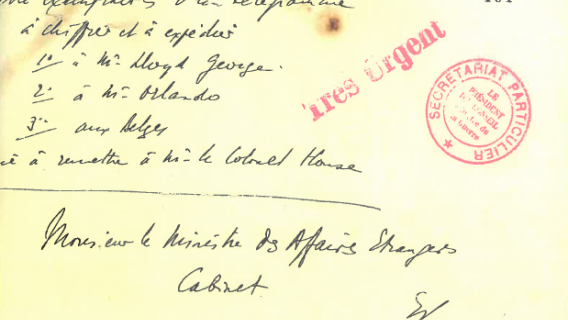 exemplaires d'un télégramme
à chiffrer et à expédier
1° à Mr Lloyd George.
2° à Mr Orlando
3° aux Belges
à remettre à Mr le Colonel House
Très Urgent
SECRÉTARIAT PARTICULIER
LE
PRÉSIDENT
DU CONSEIL
Ministre de
la Guerre
Monsieur le Ministre des Affaires Etrangères
Cabinet